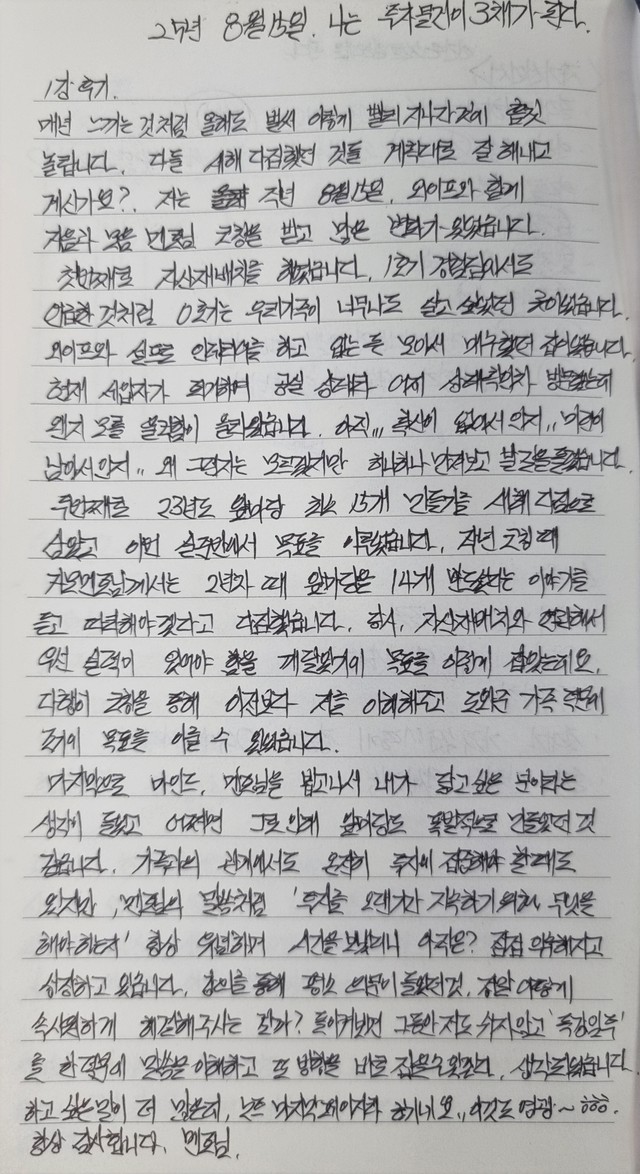 25년 8월 15일. 나는 투자물건이 3채가 된다.
1강 후기.
매년 느끼는 것처럼 올해도 벌써 이렇게 빨리 지나간 것에 흠칫
놀랍니다. 다들 새해 다짐했던 것들 계획대로 잘 해내고
계신가요?. 저는 작년 8월 15일, 와이프와 함께
멘토님 코칭을 받고 많은 변화가 있었습니다.
첫번째로 자산재배치를 했습니다. 1호기 경험담에서도
언급한 것처럼 0호기는 우리가족이 너무나도 살고 싶었던 곳이었습니다.
와이프와 실제로 인테리어를 하고 없는 돈 모아서 매수했던 집이었습니다.
현재 세입자가 퇴거하여 공실 상태라 어제 상태확인차 방문했는데
왠지 모를 울컥함이 올라왔습니다. 아직,,, 확신이 없어서 인지,, 미련이
남아서인지,, 왜 그런지는 모르겠지만 하나하나 만져보고 발길을 돌렸습니다.
두번째로 23년도 앞마당 최소 15개 만들기를 새해 다짐으로
삼았고 이번 실준반에서 목표를 이뤘습니다. 작년 코칭 때
멘토님께서는 2년차 때 앞마당을 14개 만들었다는 이야기를
듣고 따라해야겠다고 다짐했습니다. 역시, 자산재배치와 연관해서
우선 실력이 있어야 함을 깨달았기에 목표를 이렇게 잡았는데요.
다행히 코칭을 통해 이전보다 저를 이해해주고 도와준 가족 덕분에
저의 목표를 이룰 수 있었습니다.
마지막으로 마인드. 멘토님을 뵙고나서 내가 닮고 싶은 분이라는
생각이 들었고 어쩌면 그로 인해 앞마당도 폭발적으로 만들었던 것
같습니다. 가족과의 관계에서도 온전히 투자에 집중해야 할 때도
있지만, 멘토님의 말씀처럼 '투자를 오래가 지속하기 위해 무엇을
해야 하는지' 항상 유념하며 시간을 보냈더니 아직은? 점점 익숙해지고
성장하고 있습니다. 강의를 통해 평소 의문이 들었던 것. 정말 어떻게
속시원하게 해결해주시는 건가? 돌이켜보면 그동안 저도 쉬지않고 '독강임투'
를 한 덕분에 말씀을 이해하고 또 방향을 바로 잡을 수 있겠다. 생각되었습니다.
하고 싶은 말이 더 많은데, 노트 마지막 페이지라 하기네요,, 이것도 영광~ ㅎㅎㅎ.
항상 감사합니다. 멘토님.